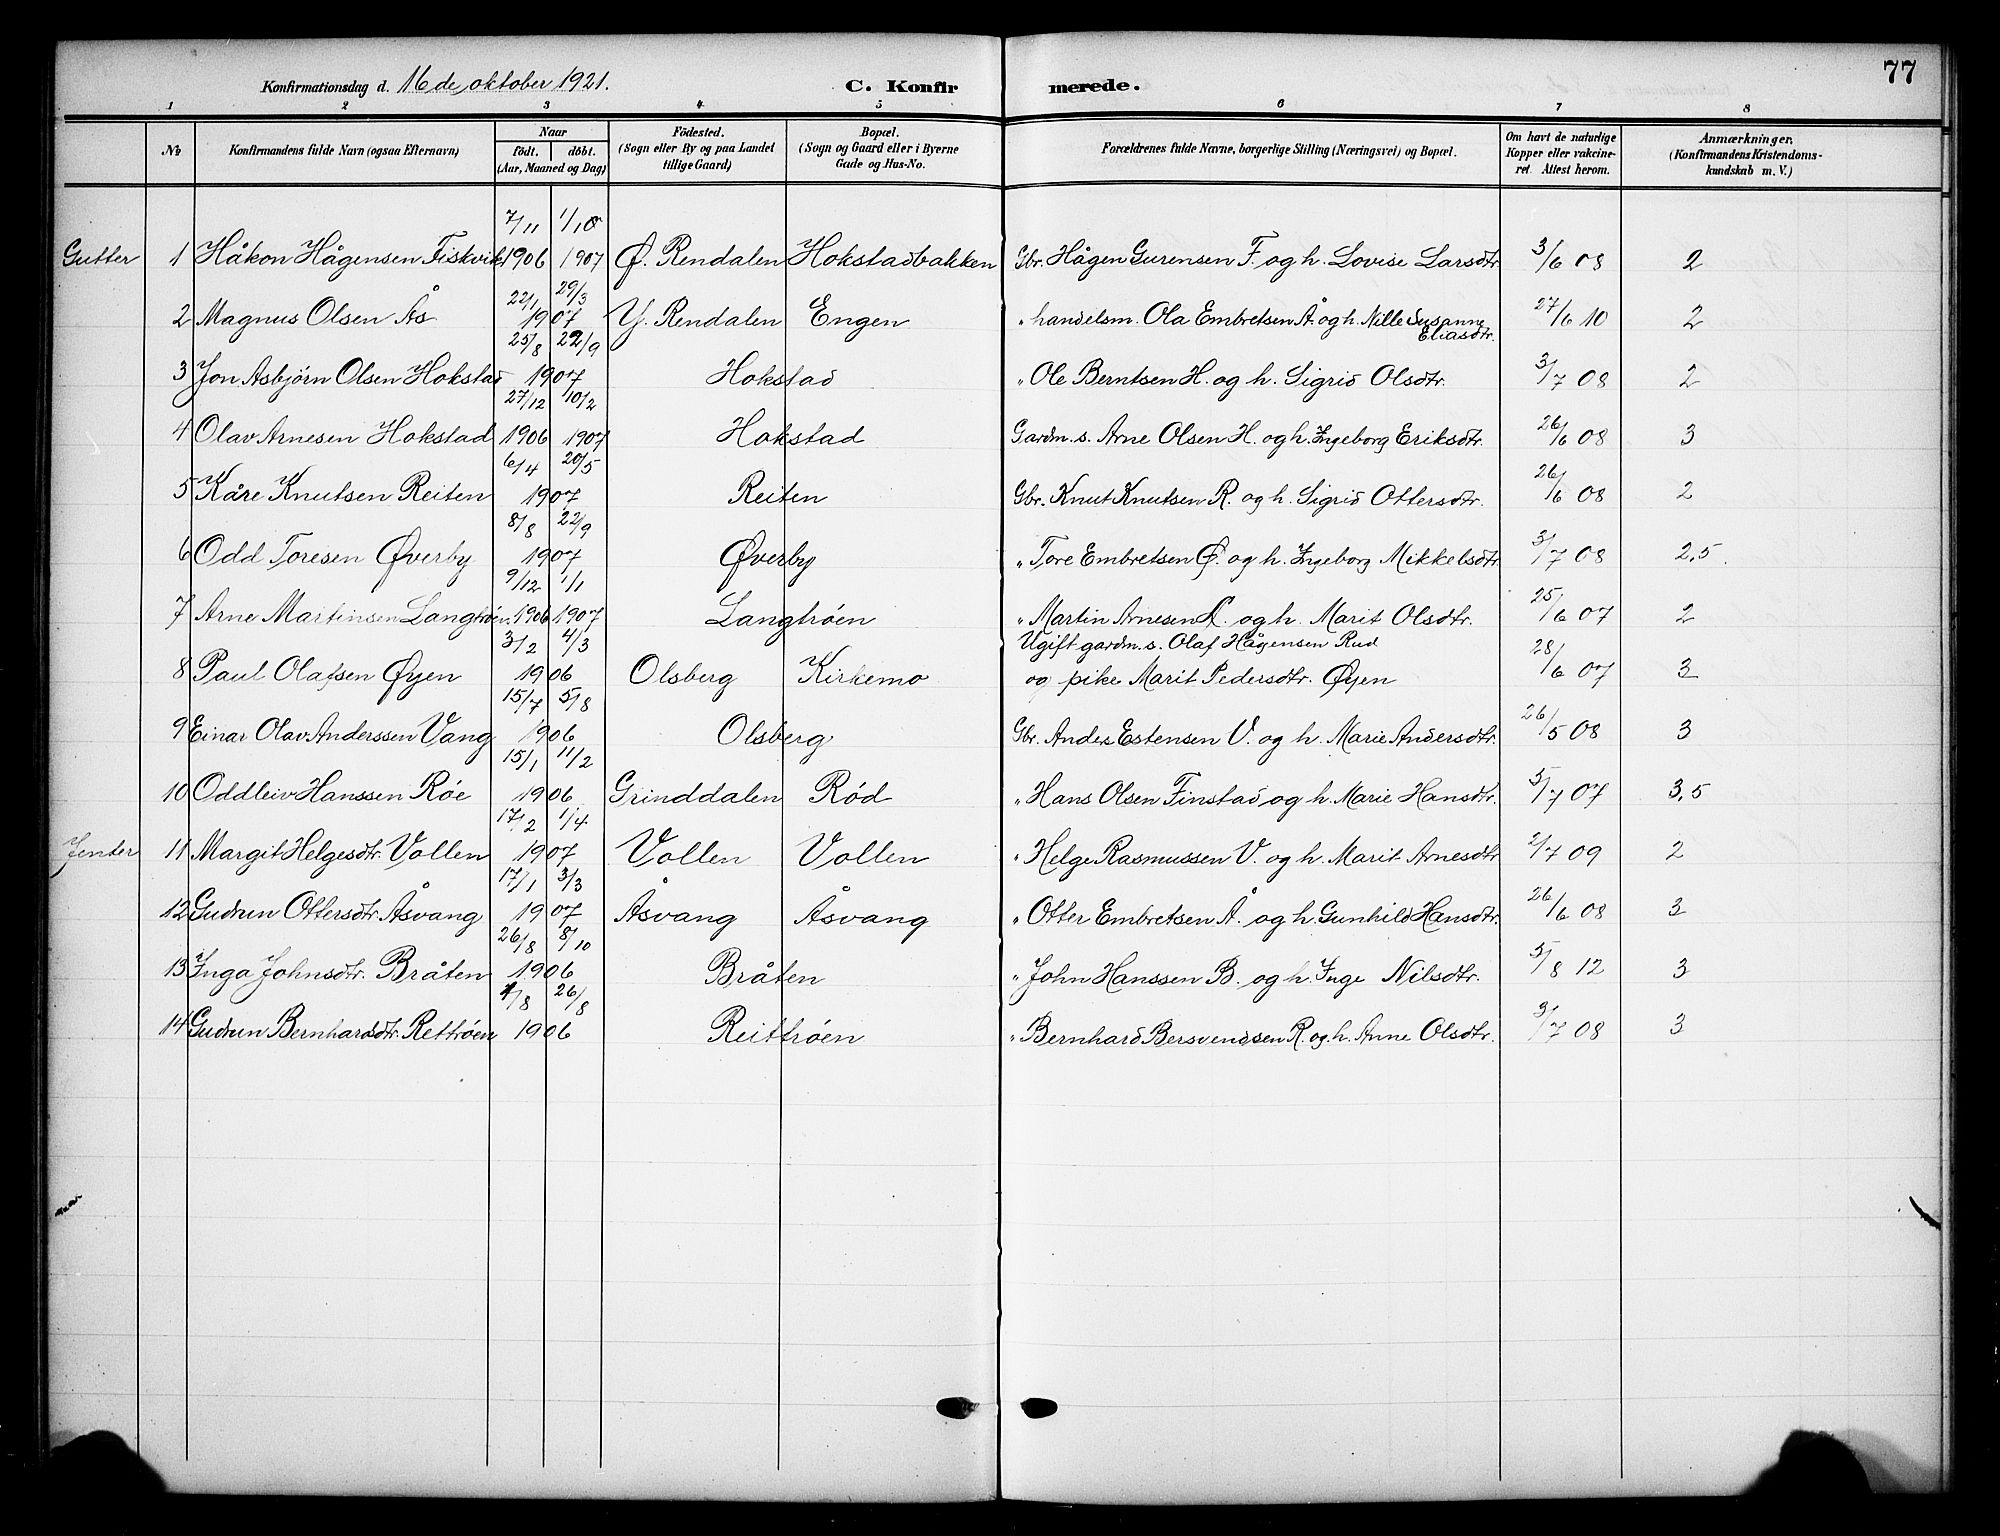 77
Konfirmationsdag d. 16de oktober 1921. C. Konfirmerede.
1 2 3 4 5 6 7 8
No Konfirmandens fulde Navn (ogsaa Efternavn) Naar födt. döbt. (Aar, Maaned og Dag) Födested. (Sogn eller By og paa Landet tillige Gaard) Bopæl. (Sogn og Gaard eller i Byerne Gade og Hus-No. Forældrenes fulde Navne, borgerlige Stilling (Næringsvei) og Bopæl. Om havt de naturlige Kopper eller vakcineret. Attest herom. Anmærkninger. (Konfirmandens Kristendomskundskab m. V.)
7/11 1/10
Gutter 1 Håkon Hågensen Fiskvik 1906 1907 Ø. Rendalen Hokstadbakken Gbr. Hågen Gurensen F. og h. Lovise Larsdtr 3/6 08 2
22/1 29/3
2 Magnus Olsen Ås 1907 Y. Rendalen Engen " handelsm. Ola Embretsen Å. og h. Nille Susanne Eliasdtr. 27/6 10 2
25/8 22/9
3 Jon Asbjörn Olsen Hokstad 1907 Hokstad " Ole Berntsen H. og h. Sigrid Olsdtr. 3/7 08 2
27/12 10/2
4 Olav Arnesen Hokstad 1906 1907 Hokstad Gardm. s. Arne Olsen H. og h. Ingeborg Eriksdtr. 26/6 08 3
6/4 20/5
5 Kåre Knutsen Reiten 1907 Reiten Gbr. Knut Knutsen R. og h. Sigrid Ottersdtr. 26/6 08 2
8/8 22/9
6 Odd Toresen Øverby 1907 Øverby " Tore Embretsen Ø. og h. Ingeborg Mikkelsdtr. 3/7 08 2,5
9/12 1/1
7 Arne Martinsen Langtröen 1906 1907 Langtröen " Martin Arnesen L. og h. Marit Olsdtr. 25/6 07 2
3/2 4/3 Ugift gardm. s. Olaf Hågensen Rud
8 Paul Olafsen Øyen 1906 Olsberg Kirkemo og pike Marit Pedersdtr. Øyen 28/6 07 3
15/7 5/8
9 Einar Olav Anderssen Vang 1906 Olsberg Gbr. Anders Estensen V. og h. Marie Andersdtr. 26/5 08 3
15/1 11/2
10 Oddleiv Hanssen Röe 1906 Grinddalen Röd " Hans Olsen Finstad og h. Marie Hansdtr. 5/7 07 3,5
17/2 1/4
Jenter 11 Margit Helgesdtr. Vollen 1907 Vollen Vollen " Helge Rasmussen V. og h. Marit Arnesdtr 2/7 09 2
17/1 3/3
12 Gudrun Ottersdtr. Åsvang 1907 Åsvang Åsvang " Otter Embretsen Å. og h. Gunhild Hansdtr. 26/6 08 3
26/8 8/10
13 Inga Johnsdtr. Bråten 1906 Bråten " John Hanssen B. og h. Inge Nilsdtr. 5/8 12 3
26/8
14 Gudrun Bernhardsdtr. Rettröen 1906 Reittröen " Bernhard Bersvendsen R. og h. Anne Olsdtr. 3/7 08 3